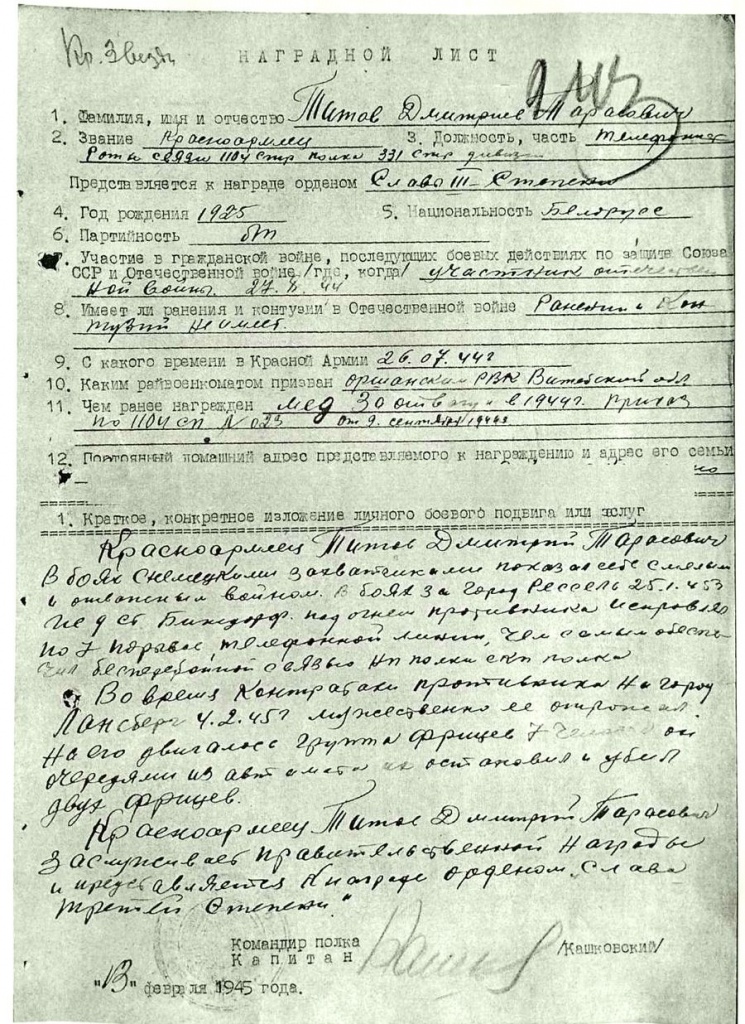 Кр. Звезды
НАГРАДНОЙ ЛИСТ
1. Фамилия, имя и отчество Титов Дмитрий Тарасович
2. Звание Красноармеец 3. Должность, часть Телефонист
Роты связи 1104 стр полка 331 стр дивизии
Представляется к награде орденом Слава III-Степени
4. Год рождения 1925 5. Национальность Белорус
6. Партийность б/п
7. Участие в гражданской войне, последующих боевых действиях по защите Союза
ССР и Отечественной войне /где, когда/ участник отечествен
ной войны. 44
8. Имеет ли ранения и контузии в Отечественной войне Ранений и Кон
тузий не имеет.
9. С какого времени в Красной Армии 26.07.44г
10. Каким райвоенкоматом призван Оршанским РВК Витебской обл
11. Чем ранее награжден мед За отвагу в 1944г. приказ
по 1104 сп N 023 от 9. сентября 1944г
12. Постоянный домашний адрес представляемого к награждению и адрес его семьи
1. Краткое, конкретное изложение личного боевого подвига или заслуг
Красноармеец Титов Дмитрий Тарасович
В боях с немецкими захватчиками показал себе смелым
и отважным войном. В боях за город Рессель 25.1.45г
под огнем противника исправлял
по 7 порывов телефонной линии, чем самым обеспе-
чил бесперебойной связью нп полка с кп полка
Во время контратаки противника на город
Лансберг 4.2.45г мужественно ее отражал.
На его двигалось группа фрицев 7 человек он
очередями из автомата их остановил и убил
двух фрицев.
Красноармеец Титов Дмитрий Тарасович
заслуживает правительственной награды
и представляется к награде орденом „Слава
третей степени"
Командир полка
Капитан /Кашковский/
"13" февраля 1945 года.